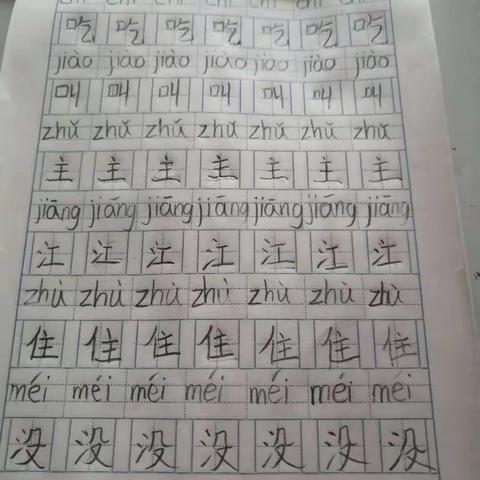 chī chī chī chī chī chī chī
吃 吃 吃 吃 吃 吃 吃
jiào jiào jiào jiào jiào jiào jiào
叫 叫 叫 叫 叫 叫 叫
zhǔ zhǔ zhǔ zhǔ zhǔ zhǔ zhǔ
主 主 主 主 主 主 主
jiāng jiāng jiāng jiāng jiāng jiāng jiāng
江 江 江 江 江 江 江
zhù zhù zhù zhù zhù zhù zhù
住 住 住 住 住 住 住
méi méi méi méi méi méi méi
没 没 没 没 没 没 没